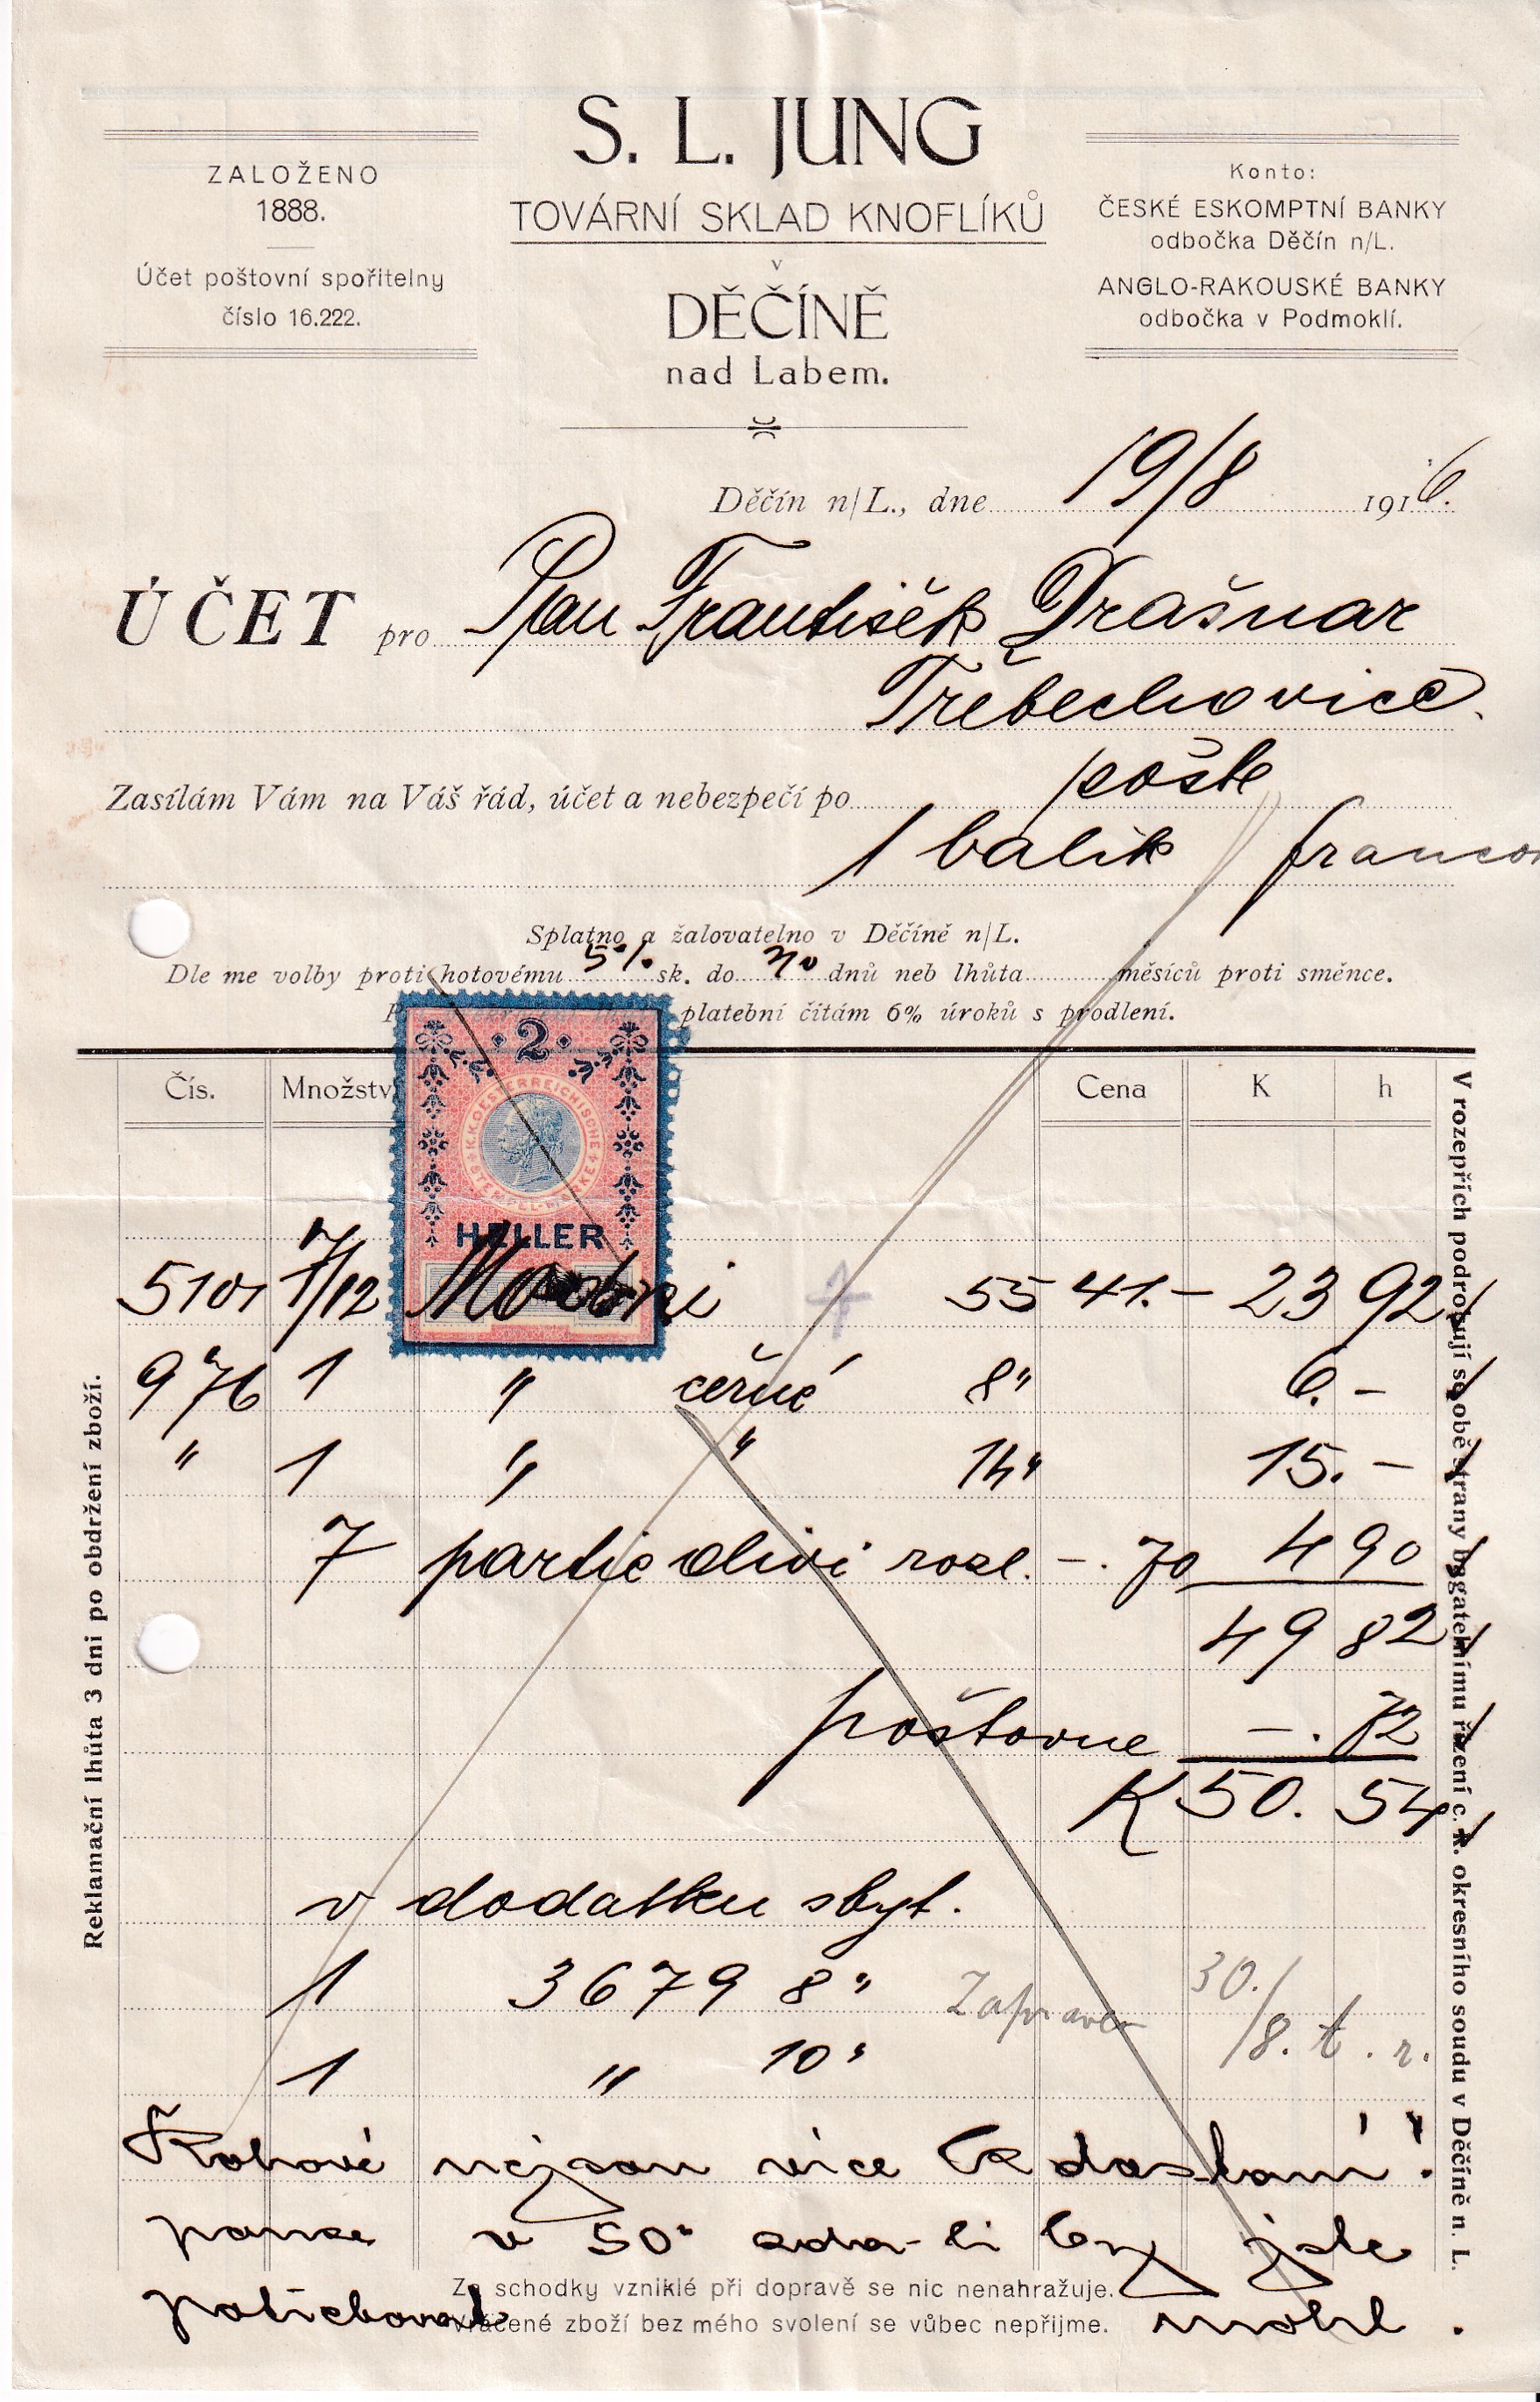 S. L. JUNG
TOVÁRNÍ SKLAD KNOFLÍKŮ
v
DĚČÍNĚ
nad Labem.
ZALOŽENO
1888.
Účet poštovní spořitelny
číslo 16.222.
Konto:
ČESKÉ ESKOMPTNÍ BANKY
odbočka Děčín n/L.
ANGLO-RAKOUSKÉ BANKY
odbočka v Podmoklí.
Děčín n/L., dne 19/8 1916.
ÚČET pro Pan František Drašnar
Třebechovice.
Zasílám Vám na Váš řád, účet a nebezpečí po poště
1 balík franco
Splatno a žalovatelno v Děčíně n/L.
Dle me volby proti hotovému 5% sk. do dnů neb lhůta měsíců proti směnce.
platební čítám 6% úroků s prodlení.
Čís. Množstv Cena K h
2
K.K. OESTERREICHISCHE
HELLER
5101 7/12 55 41.- 23 92
976 1 " černé 8" 6.-
" 1 " " 14" 15.-
7 partie olivi rozl. -.70 4 90
49 82
poštovne -.72
K 50.54
v dodatku zbyt.
1 3679 8"
1 " 10"
Zapraven 30./8. t. r.
nejsou více k dostaní!
pouze v 50" zda-li by jste
potřeboval mohl.
Za schodky vzniklé při dopravě se nic nenahražuje.
Vrácené zboží bez mého svolení se vůbec nepřijme.
Reklamační lhůta 3 dni po obdržení zboží.
V rozepřích podrobují se obě strany bagatelnímu řízení c. k. okresního soudu v Děčíně n. L.